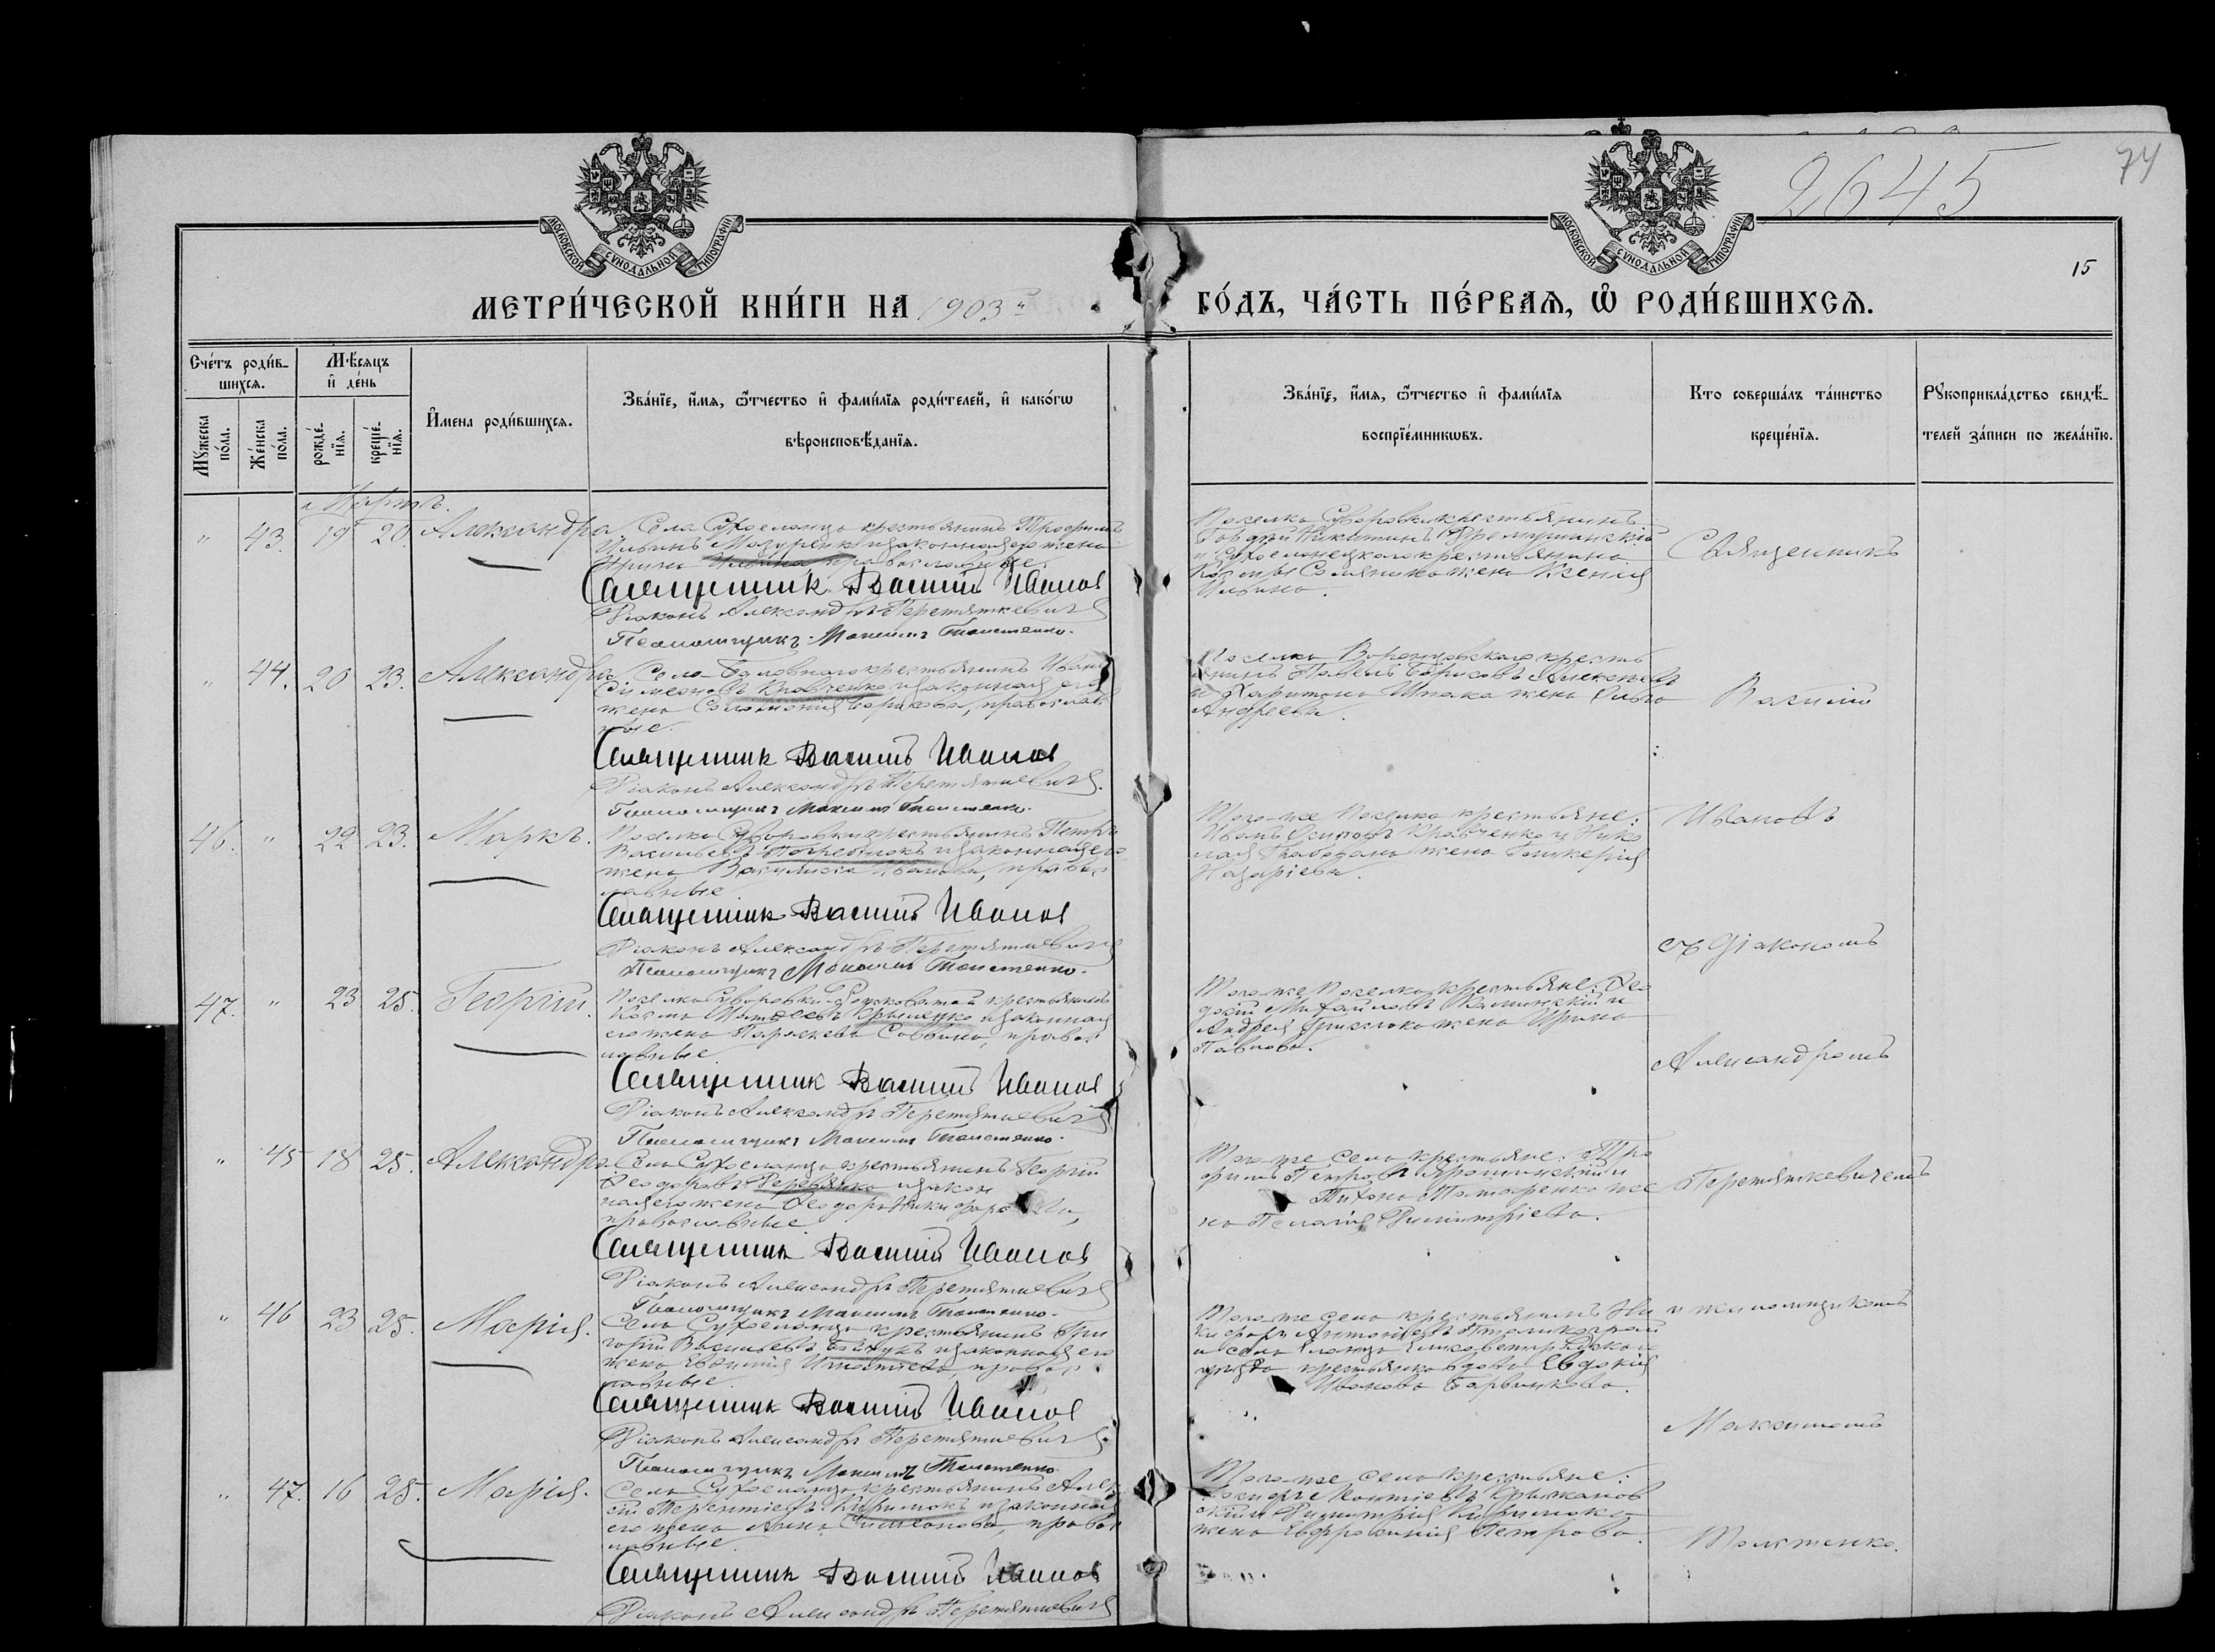 2645
74
15
МОСКОВСКОЙ СѴНОДАЛЬНОЙ ТИПОГРАФІИ
МОСКОВСКОЙ СѴНОДАЛЬНОЙ ТИПОГРАФІИ
МЕТРИ́ЧЕСКОЙ КНИ́ГИ НА 1903й
ГО́ДЪ, ЧА́СТЬ ПЕ́РВАѦ, Ѡ҆ РОДИ́ВШИХСѦ.
Сче́тъ роди́в-
шихсѧ.
Мꙋ́жеска по́ла.
Же́нска по́ла.
Мѣ́сѧцъ
и҆ де́нь
рожде́-нїѧ.
креще́-нїѧ.
И҆мена роди́вшихсѧ.
Зва́нїе, и҆́мѧ, ѻ҆́тчество и҆ фамилїѧ роди́телей, и҆ како́гѡ
вѣроисповѣ́данїѧ.
Зва́нїе, и҆́мѧ, ѻ҆́тчество и҆ фамилїѧ
воспрїе́мникѡвъ.
Кто соверша́лъ та́инство
креще́нїѧ.
Рꙋкоприкла́дство свидѣ́-
телей за́писи по жела́нїю.
Мартъ.
" 43. 19 20. Александра
Села Сухоеланца крестьянинъ Трофимъ
Ильинъ Мазуренко и законная его жена
Ирина Ильина, православные.
Священник Василий Иванов
Діаконъ Александръ Перетяткевичъ
Псаломщикъ Максимъ Толстенко.
Поселка Суворовки крестьянинъ
Гордѣй Никитинъ
и Сухоеланецкого крестьянина
жена Ксенія
Ильина.
Священникъ
" 44. 20 23. Александра
Села крестьянинъ Иванъ
Симеоновъ Кравченко и законная его
жена Соломонія Борисова, православ
ные.
Священник Василий Иванов
Діаконъ Александръ Перетяткевичъ.
Псаломщикъ Максимъ Толстенко.
Поселка Воронцовскаго кресть
янинъ Павелъ Борисовъ
и Харитона жена Ольга
Андреева.
Василій
46. " 22 23. Маркъ.
Поселка Суворовки крестьянинъ Петръ
Васильевъ и законная его
жена Иванова, правос
лавные
Священник Василий Иванов
Діаконъ Александръ Перетяткевичъ
Псаломщикъ Максимъ Толстенко.
Того-же поселка крестьяне:
Иванъ Осиповъ Кравченко и Нико
лая жена Гликерія
Назаріева.
Ивановъ
съ Діакономъ
47. " 23 25. Георгій.
Поселка Суворовки крестьянинъ
Козма Матѳеевъ и законная
его жена Параскева Саввина, правос
лавные
Священник Василий Иванов
Діаконъ Александръ Перетяткевичъ
Псаломщикъ Максимъ Толстенко.
Того-же поселка крестьяне: Ѳео
Михайловъ и
Андрея жена Ирина
Павлова.
Александромъ
" 45 18 25. Александра
Села Сухоеланца крестьянинъ Георгій
Ѳеодоровъ Деревянко и закон
ная его жена Ѳеодора
православные
Священник Василий Иванов
Діаконъ Александръ Перетяткевичъ
Псаломщикъ Максимъ Толстенко.
Того-же села крестьяне: Тро
фимъ Петровъ и
Тихона же
на Пелагія Димитріева.
Перетяткевичемъ
" 46 23 25. Марія.
Села Сухоеланца крестьянинъ Гри
горій Васильевъ и законная его
жена Евфимія Игнатіева, правос
лавные.
Священник Василий Иванов
Діаконъ Александръ Перетяткевичъ.
Псаломщикъ Максимъ Толстенко
Того-же села крестьянинъ Ни
кифоръ Антоніевъ
и села Еланца Елисаветградскаго
уѣзда крестьянка вдова Евдокія
Иванова
и псаломщикомъ
Максимомъ
" 47. 16 25. Марія.
Села Сухоеланца крестьянинъ Алек
сѣй Терентіевъ и законная
его жена Анна Симеонова, правос
лавные.
Священник Василий Иванов
Діаконъ Александръ Перетяткевичъ
Того-же села крестьяне:
и Димитрія
жена Евфросинія Петрова.
Толстенко.